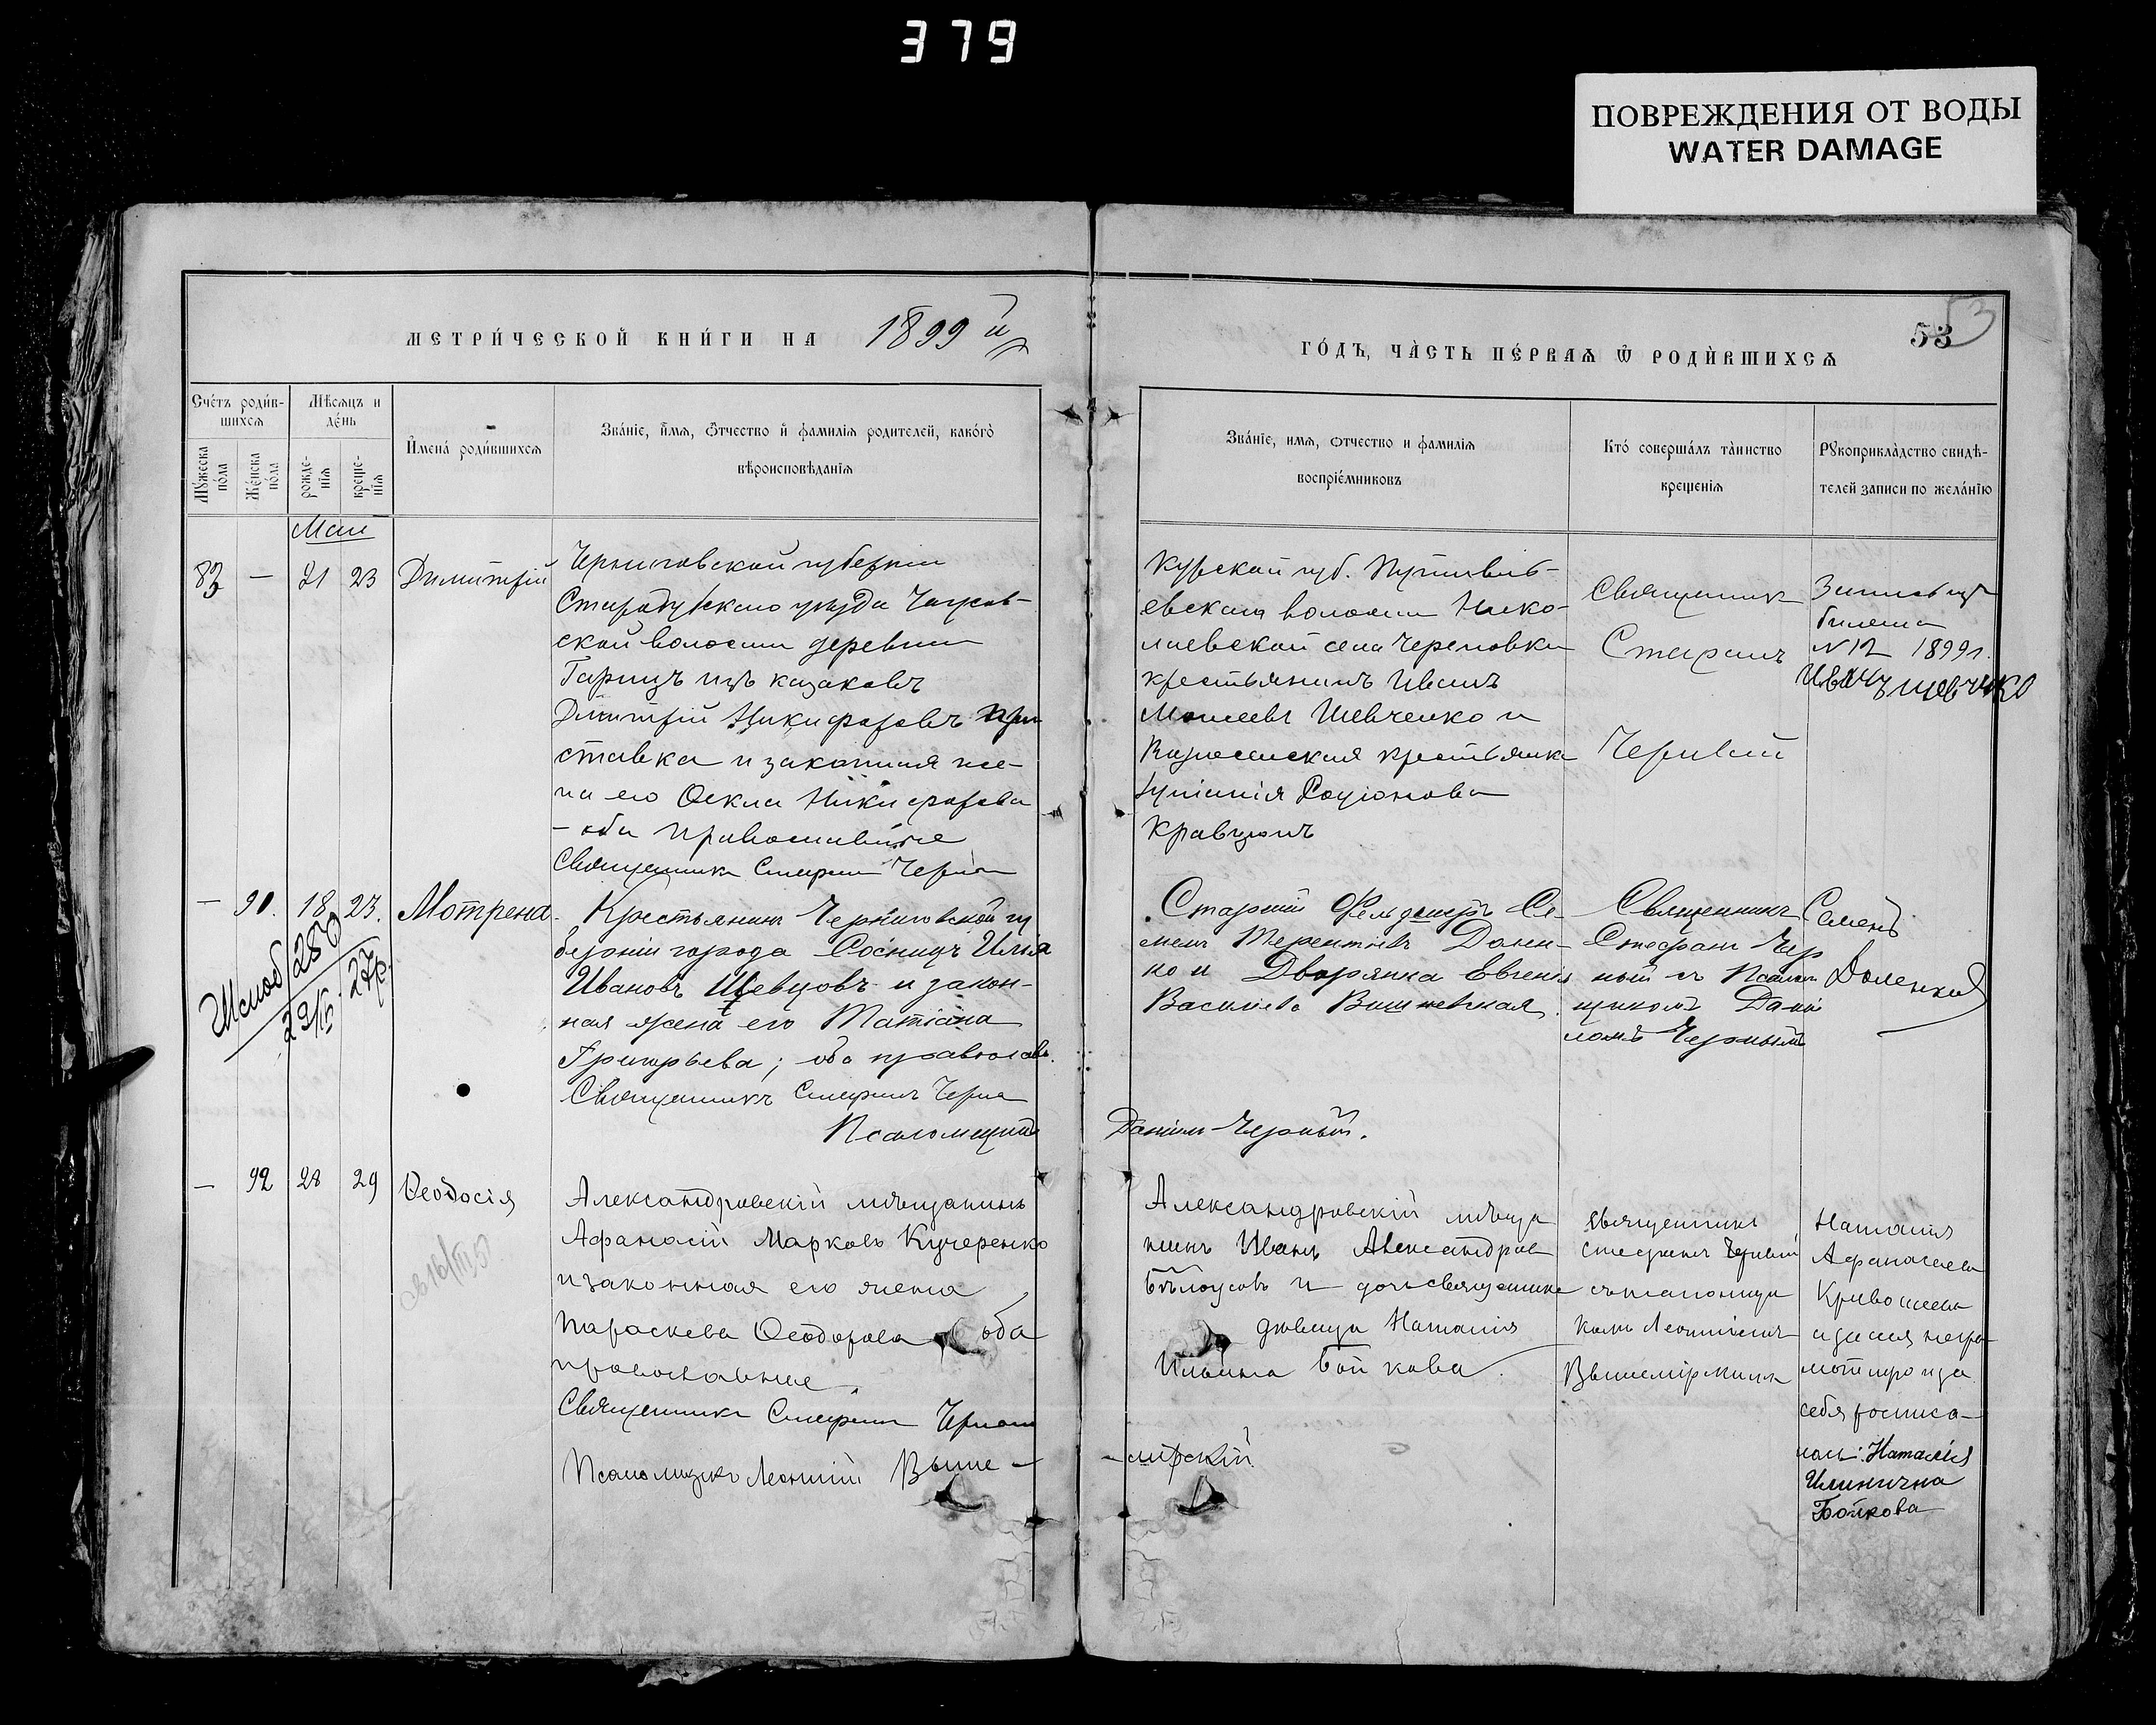 379
ПОВРЕЖДЕНИЯ ОТ ВОДЫ
WATER DAMAGE
МЕТРИ́ЧЕСКОЙ КНИ́ГИ НА 1899 й
ГО́ДЪ, ЧА̀СТЬ ПЕ́РВАѦ Ѿ РОДЍВШИХСѦ
53
53
Сче́тъ роди́в-
шихсѧ
Мѣ́сѧцъ и
де́нь
Мꙋ́жеска
по́ла
Же́нска
по́ла
рожде-
нїѧ
креще-
нїѧ
И҆мена̀ роди́вшихсѧ
Зва́нїе, и҆́мѧ, ѻ҆́тчество и҆ фамилїѧ родителей, како́гѡ
вѣроисповѣ́данїѧ
Зва́нїе, имѧ, ѻтчество и фамилїѧ
воспрїе́мниковъ
Кто́ соверша́лъ та̀инство
крещенїѧ
Рꙋкоприкла̀дство свидѣ́-
телей записи по жела́нїю
Май
83 — 21 23 Димитрій
Черниговской губерніи
Стародубскаго уѣзда
ской волости деревни
изъ казаковъ
Димитрій Никифоровъ При
ставка и законная же-
на его Ѳекла Никифорова
- оба православные
Священникъ Стефанъ Черный
Курской губ. Путивль-
евской волости Нико-
лаевской села Череповки
крестьянинъ Иванъ
Моисеевъ Шевченко и
крестьянка
Родіонова
Кравцонъ
Священникъ
Стефанъ
Черный
Запись изъ
билета
N 12 1899 г.
Иванъ Шевченко
— 91. 18 23. Мотрена.
250
22/IV 27
Крестьянинъ Черниговской гу
берніи города Сосницъ Илія
Ивановъ Шевцовъ и закон-
ная жена его Татіана
Григорьева; оба православ.
Священникъ Стефанъ Черный
Псаломщикъ
Даніилъ Черный.
Старшій Фельдшеръ Се-
менъ Терентіевъ Долен-
ко и Дворянка Евгенія
Васильева Вишневская.
Священникъ
Стефанъ Чер
ный съ Псалом
щикомъ Дані
ломъ Чернымъ
Семенъ
Доленко
— 92 28 29 Ѳеодосія
Александровскій мѣщанинъ
Афанасій Марковъ Кучеренко
и законная его жена
Параскева Ѳеодорова оба
православные.
Священникъ Стефанъ Черный
Псаломщикъ Леонтій Выше-
-мірскій
Александровскій мѣща
нинъ Иванъ Александров
Бѣлоусовъ и дочь священника
дѣвица Наталія
Ильина Бойкова.
Священникъ
Стефанъ Черный
съ псаломщи
комъ Леонтіемъ
Вышемірскимъ
Наталия
Афанасьева
и за нея негра-
мотную и за
себя росписа-
лась: Наталія
Ильинична
Бойкова